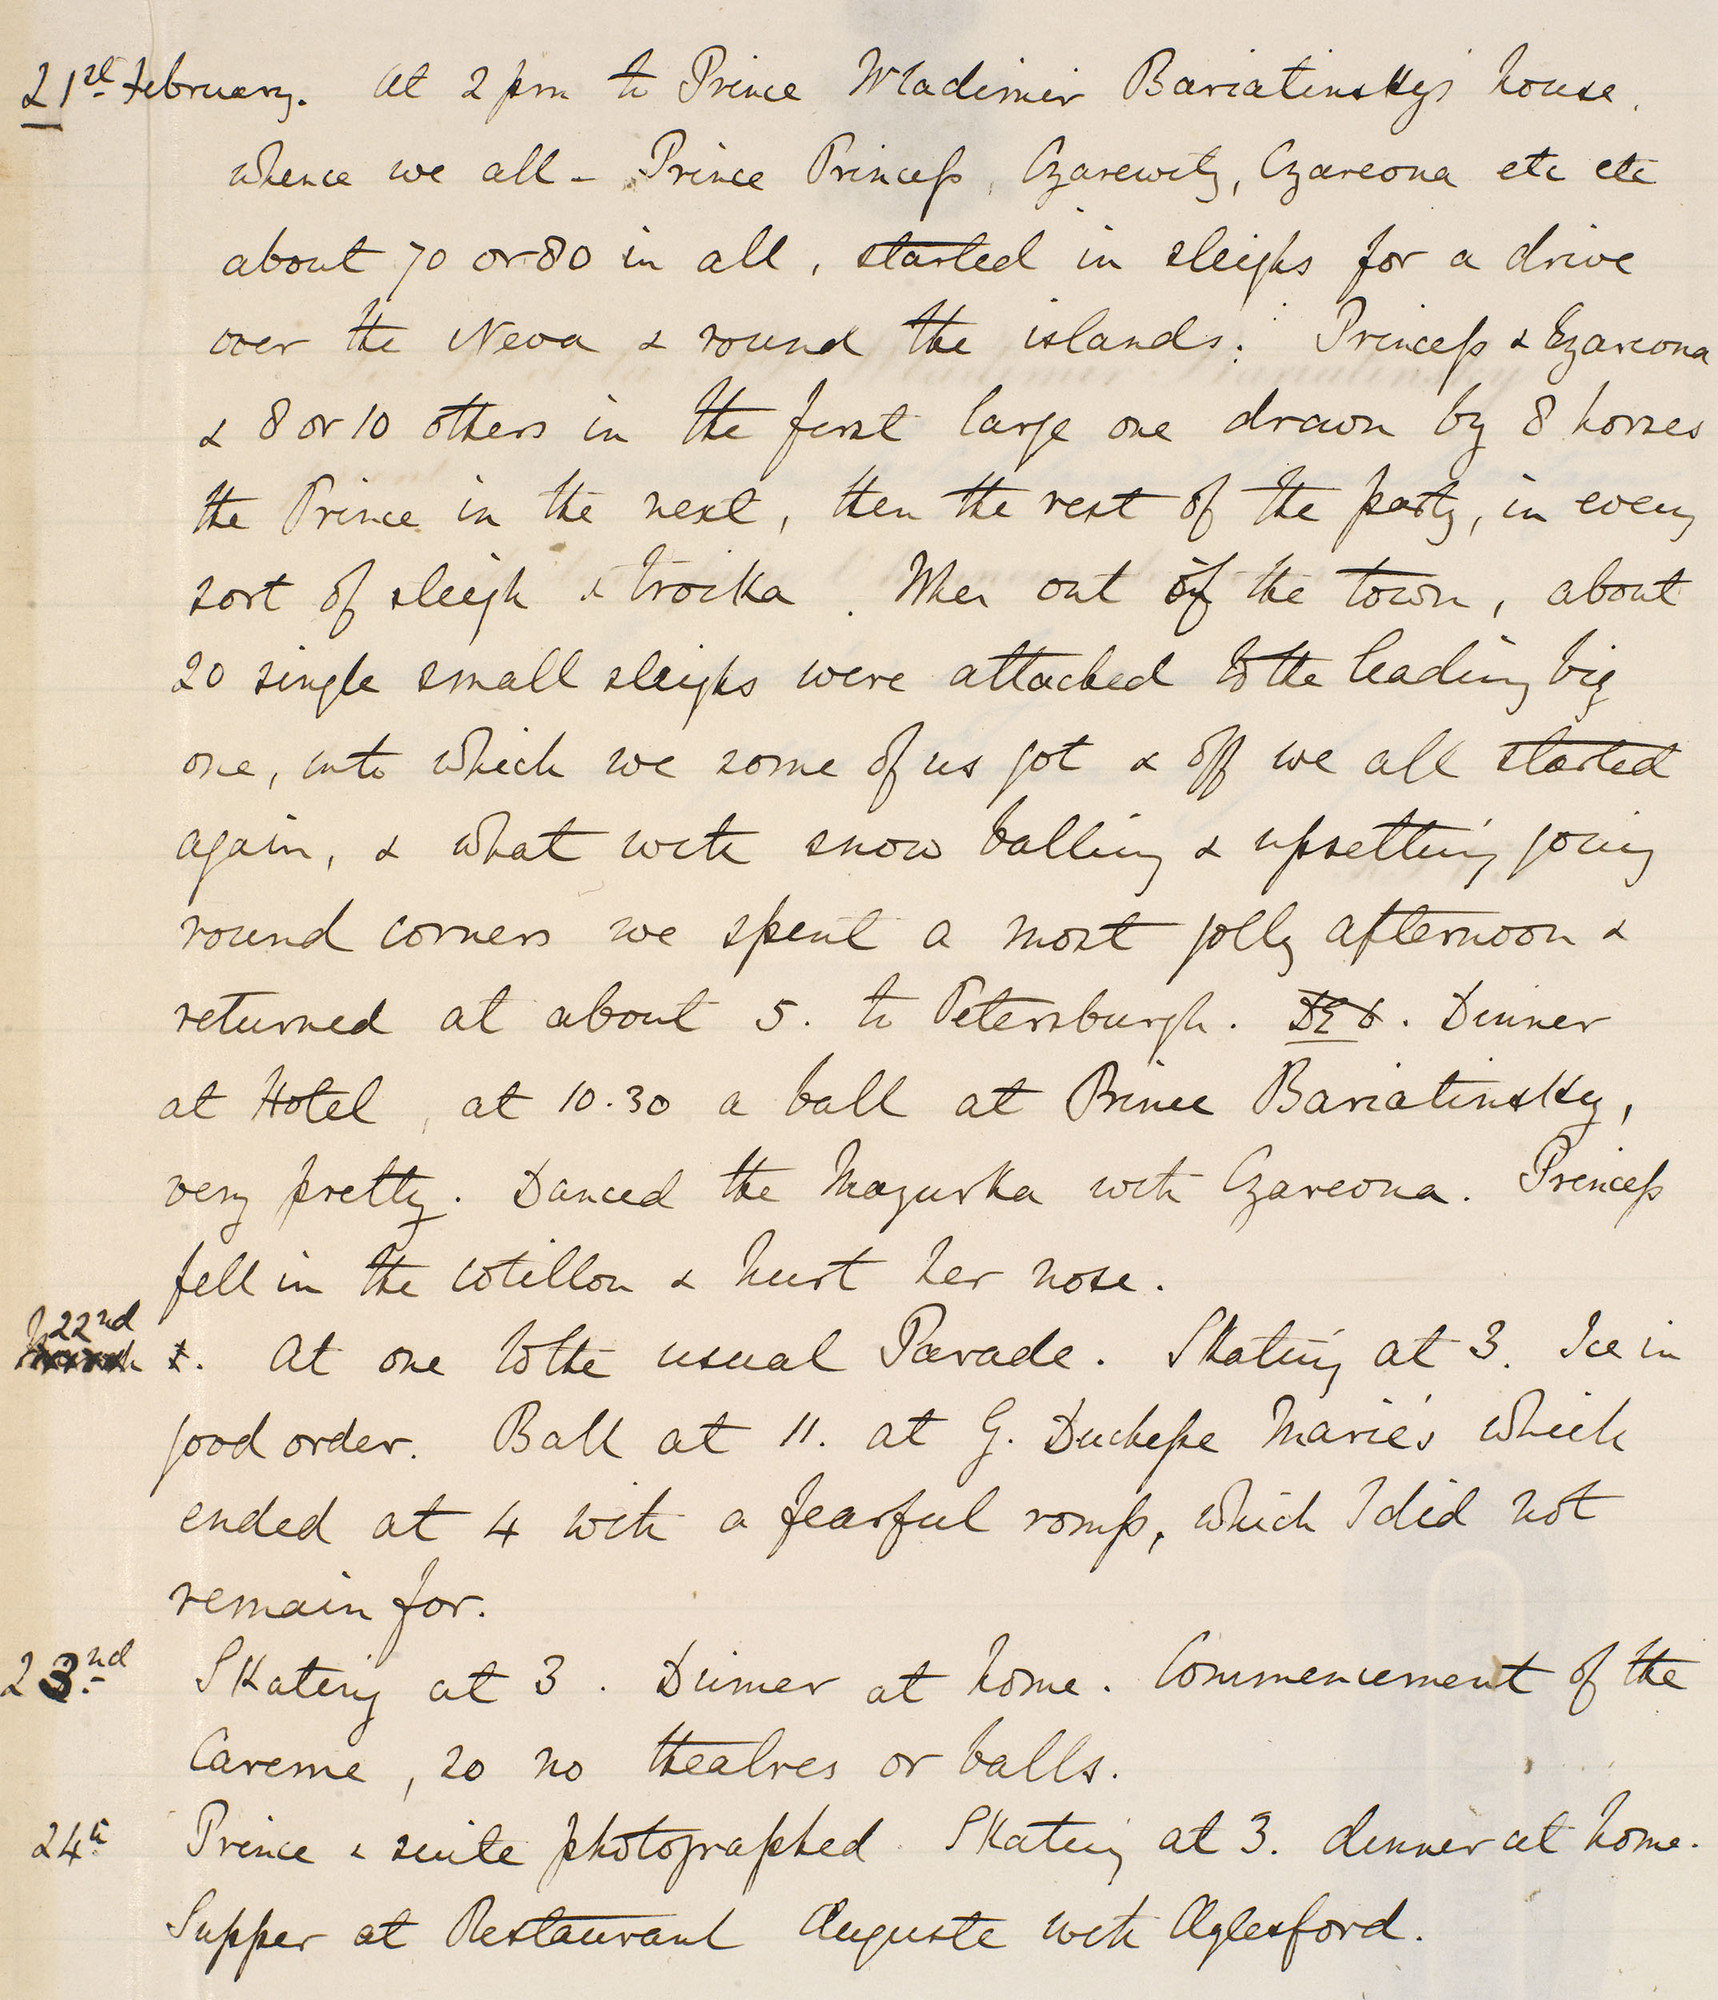 21st February. At 2 pm to Prince Wladimir Bariatinsky's house.
whence we all - Prince Princess, Czarewitz, Czareona etc etc
about 70 or 80 in all, started in sleighs for a drive
over the Neva & round the islands. Princess & Czareona
& 8 or 10 others in the first large one drawn by 8 horses
the Prince in the next, then the rest of the party, in every
sort of sleigh & troika. When out of the town, about
20 single small sleighs were attached to the leading big
one, into which we some of us got & off we all started
again, & what with snow balling & upsetting going
round corners we spent a most jolly afternoon &
returned at about 5. to Petersburgh. Dinner
at Hotel, at 10.30 a ball at Prince Bariatinsky,
very pretty. Danced the Mazurka with Czareona. Princess
fell in the cotillon & hurt her nose.
22nd At one to the usual Parade. Skating at 3. Ice in
good order. Ball at 11. at G. Duchesse Marie's which
ended at 4 with a fearful romp, which I did not
remain for.
23nd Skating at 3. Dinner at home. Commencement of the
Careme, so no theatres or balls.
24th Prince & suite photographed. Skating at 3. dinner at home.
Supper at Restaurant Auguste with Aylesford.